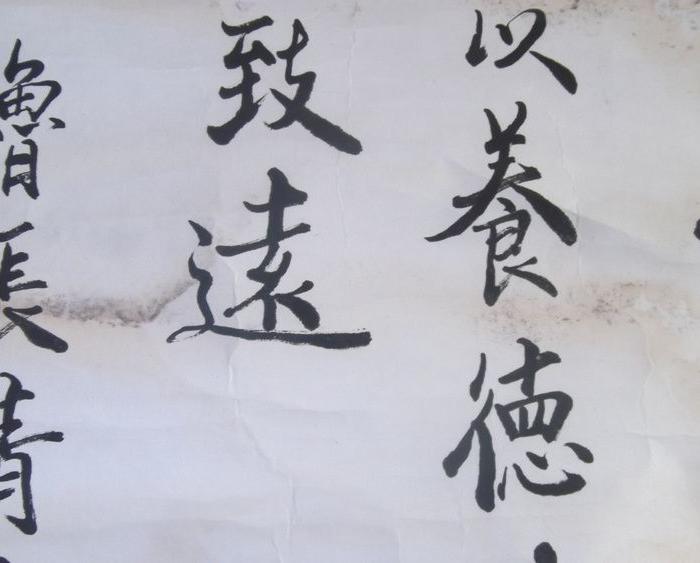 以養德
致遠
魯長清